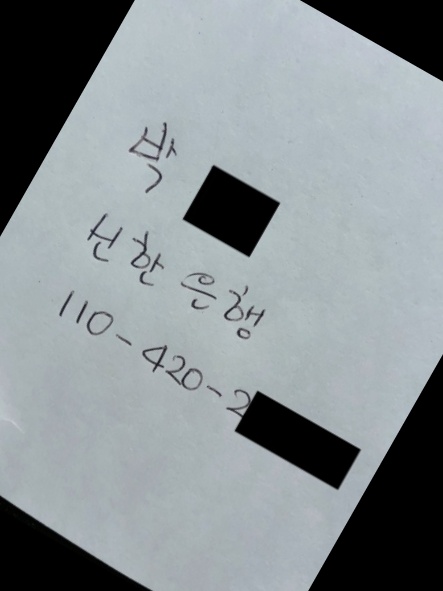 박
신한 은행
110-420-2